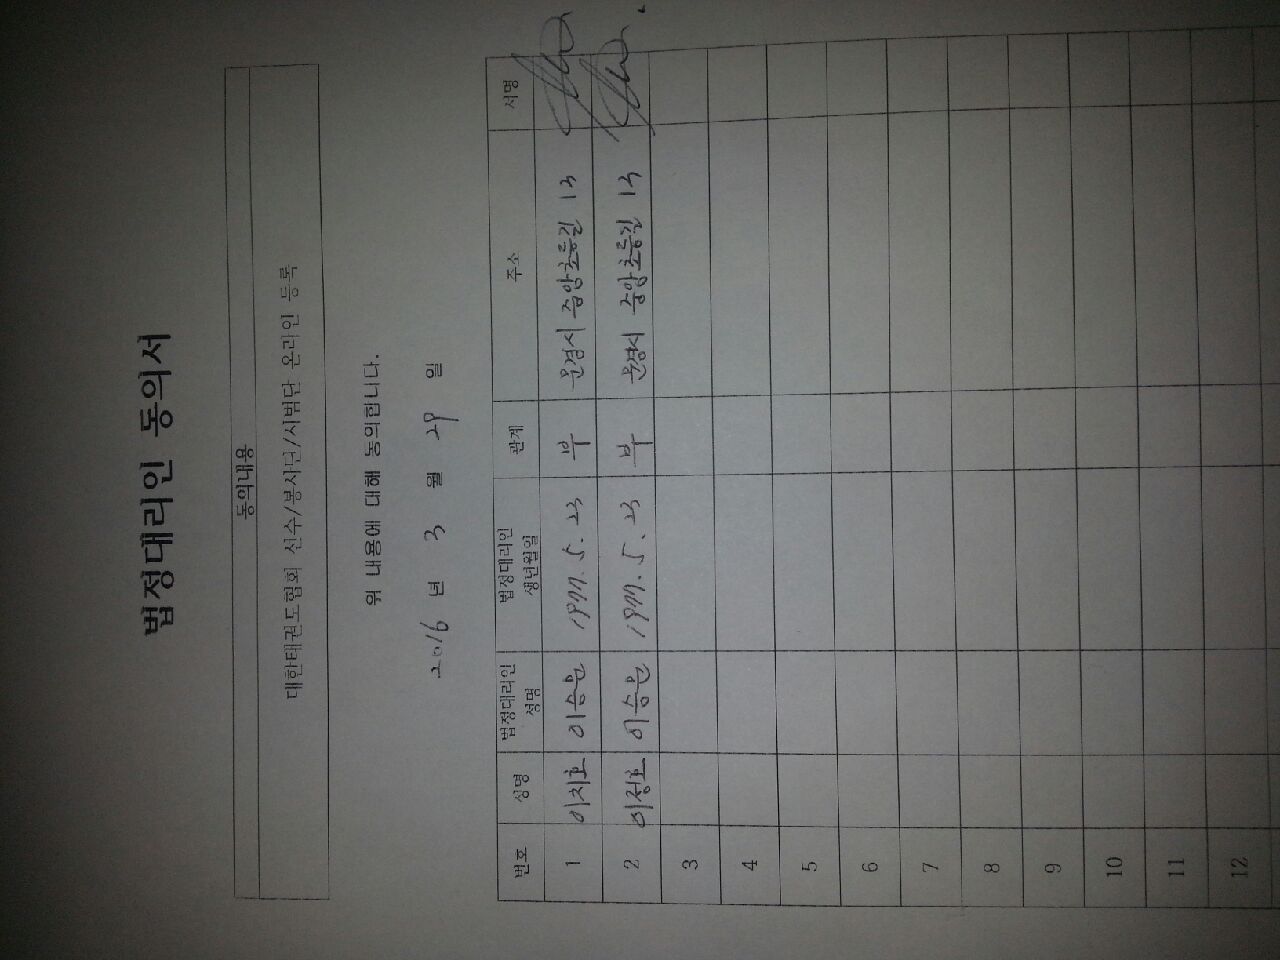 법정대리인 동의서
동의내용
대한태권도협회 선수/봉사단/시범단 온라인 등록
위 내용에 대해 동의합니다.
2016 년 3 월 29 일
번호 성명 법정대리인 성명 법정대리인 생년월일 관계 주소 서명
1 이치호 이승윤 1977. 5. 23 부 문경시 중앙초등길 13
2 이정호 이승윤 1977. 5. 23 부 문경시 중앙초등길 13
3
4
5
6
7
8
9
10
11
12